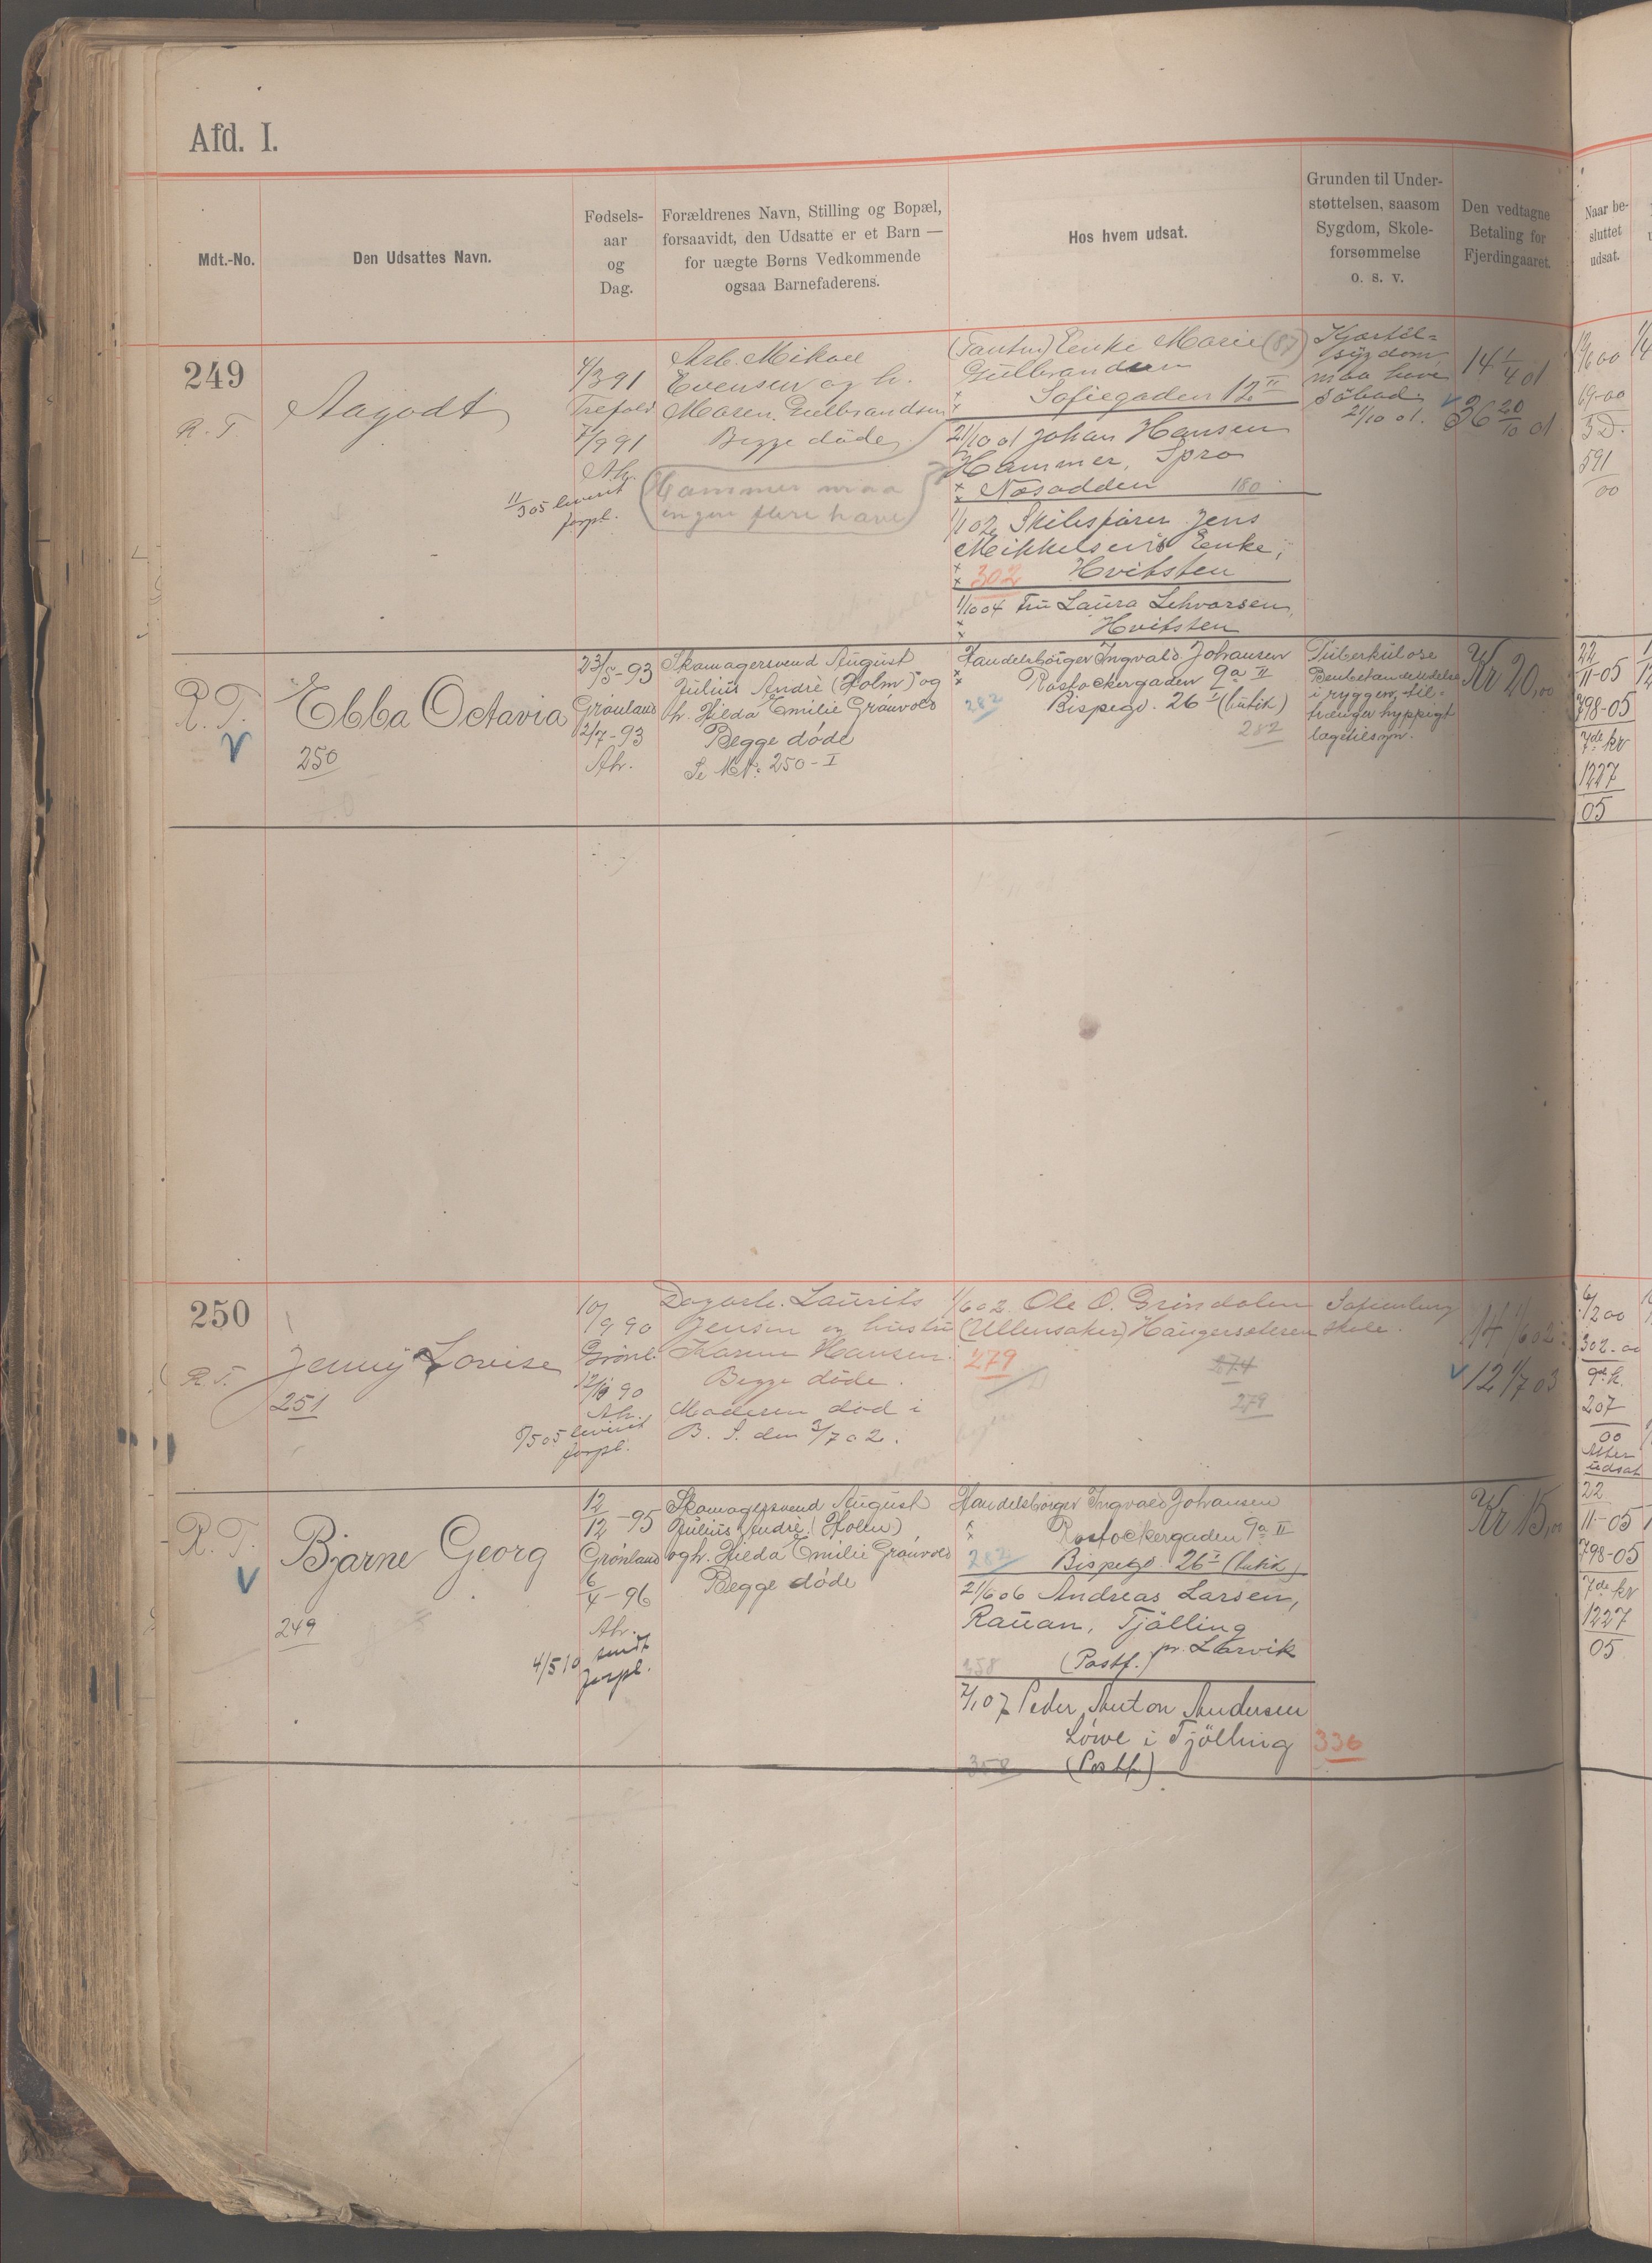 Afd. I.
Mdt.-No.
Den Udsattes Navn.
Fødsels-
aar
og
Dag.
Forældrenes Navn, Stilling og Bopæl,
forsaavidt, den Udsatte er et Barn —
for uægte Børns Vedkommende
ogsaa Barnefaderens.
Hos hvem udsat.
Grunden til Under-
støttelsen, saasom
Sygdom, Skole-
forsømmelse
o. s. v.
Den vedtagne
Betaling for
Fjerdingaaret.
Naar be-
sluttet
udsat.
249
R. T
Aagodt
4/3 91
Trefold
7/9 91
Ah.
11/3 05 leveret
forpl.
Arb. Mikael
Evensen og h.
Maren Gulbrandsen
Begge døde
Hammer maa
ingen flere have
(Tanten) Enke Marie (87)
Gulbrandsen
Sofiegaden 12 II
21/10 01 Johan Hansen
Hammer, Spro
Næsodden 180
1/1 02 Skibsfører Jens
Mikkelsens Enke,
302 Hvitsten
1/10 04 Fru Laura Sehvarsen,
Hvitsten
Kjertel-
sygdom
maa have
søbad
21/10 01.
14 1/4 01
36 20/10 01
69-00
3D.
591
00
R. T.
V
Ebba Octavia
250
23/5-93
Grønland
2/7-93
Ah.
Skomagersvend August
Julius André (Holm) og
h. Hilda Emilie Grønvold
Begge døde
Se M.N: 250-I
Handelsborger Ingvald Johansen
Rostockergaden 9a II
282 Bispegd. 26 I (butik)
282
Tuberkuløse
Benbetændelse
i ryggen, til-
trænger hyppigt
lægetilsyn.
Kr 20,00
22
11-05
798-05
7de kr
1227
05
250
R T.
Jenny Lovise
251
10/9 90
Grønl.
12/10 90
Ah.
8/5 05 leveret
forpl.
Dagarb. Laurits
Jensen og hustru
Karen Hansen.
Begge døde.
Moderen død i
B. S. den 3/7 02.
1/6 02. Ole O. Grindalen
(Ullensaker) Haugersæteren
279
274
279
Sofienberg
skole.
14 1/6 02
V 12 1/7 03
6/2 00
302-00
9de k.
207
00
Atter
udsat
R. T.
V
Bjarne Georg
249
12
12-95
Grønland
6
4-96
Ah.
4/5 10 sendt
forpl.
Skomagersvend August
Julius André (Holm)
og h. Hilda Emilie Grønvold
Begge døde
Handelsborger Ingvald Johansen
Rostockergaden 9a II
282 Bispegd. 26 I (butik)
21/6 06 Andreas Larsen,
Rauan, Tjølling
pr. Larvik
358 (Postf.)
7/1 07 Peder Anton Andersen
Løwe i Tjølling
336
358 (Postf.)
Kr 15,00
22
11-05
798-05
7de kr
1227
05